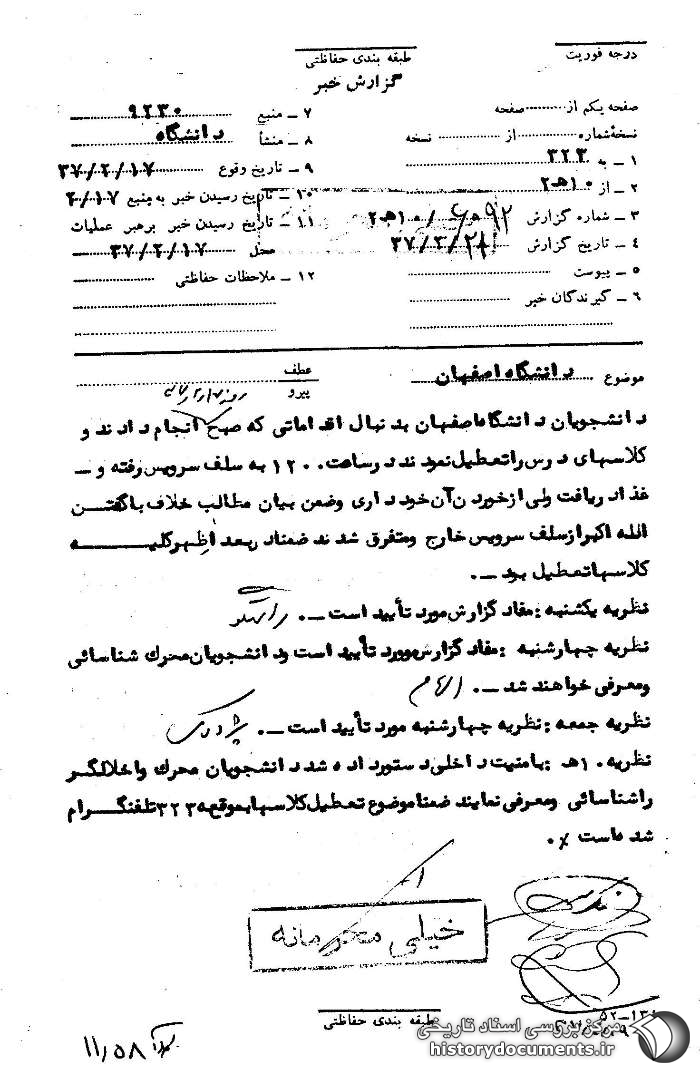 درجه فوریت
طبقه بندی حفاظتی
گزارش خبر
صفحه یکم از صفحه
نسخه شماره از نسخه
۱ ـ به ۳۲۳
۲ ـ از ۱۰هـ۲
۳ ـ شماره گزارش ۱۰هـ۲/
۴ ـ تاریخ گزارش ۳۷/۲/۲۱
۵ ـ پیوست
۶ ـ گیرندگان خبر
۷ ـ منبع ۹۲۳۰
۸ ـ منشأ دانشگاه
۹ ـ تاریخ وقوع ۳۷/۲/۱۷
۱۰ ـ تاریخ رسیدن خبر به منبع ۲/۱۷
۱۱ ـ تاریخ رسیدن خبر برهبر عملیات
محل ۳۷/۲/۱۷
۱۲ ـ ملاحظات حفاظتی
موضوع دانشگاه اصفهان
عطف
پیرو
دانشجویان دانشگاه اصفهان بدنبال اقداماتی که صبح انجام دادند و
کلاسهای درس را تعطیل نمودند در ساعت ۱۲۰۰ به سلف سرویس رفته و ـ
غذا دریافت ولی از خوردن آن خودداری وضمن بیان مطالب خلاف با گفتن
الله اکبر از سلف سرویس خارج ومتفرق شدند ضمنا در بعد ازظهر کلیه
کلاسها تعطیل بود ـ.
نظریه یکشنبه : مفاد گزارش مورد تأیید است ـ.
نظریه چهارشنبه : مفاد گزارش موورد تأیید است ودانشجویان محرک شناسائی
ومعرفی خواهند شد ـ. الهام
نظریه جمعه : نظریه چهارشنبه مورد تأیید است ـ.
نظریه ۱۰هـ : بامنیت داخلی دستور داده شد دانشجویان محرک واخلالگر
را شناسائی ومعرفی نمایند ضمنا موضوع تعطیل کلاسها بموقع به ۳۲۳ تلفنگرام
شده است ٪.
خیلی محرمانه
طبقه بندی حفاظتی
۱۱٫۵۸
مرکز بررسی اسناد تاریخی
historydocuments.ir